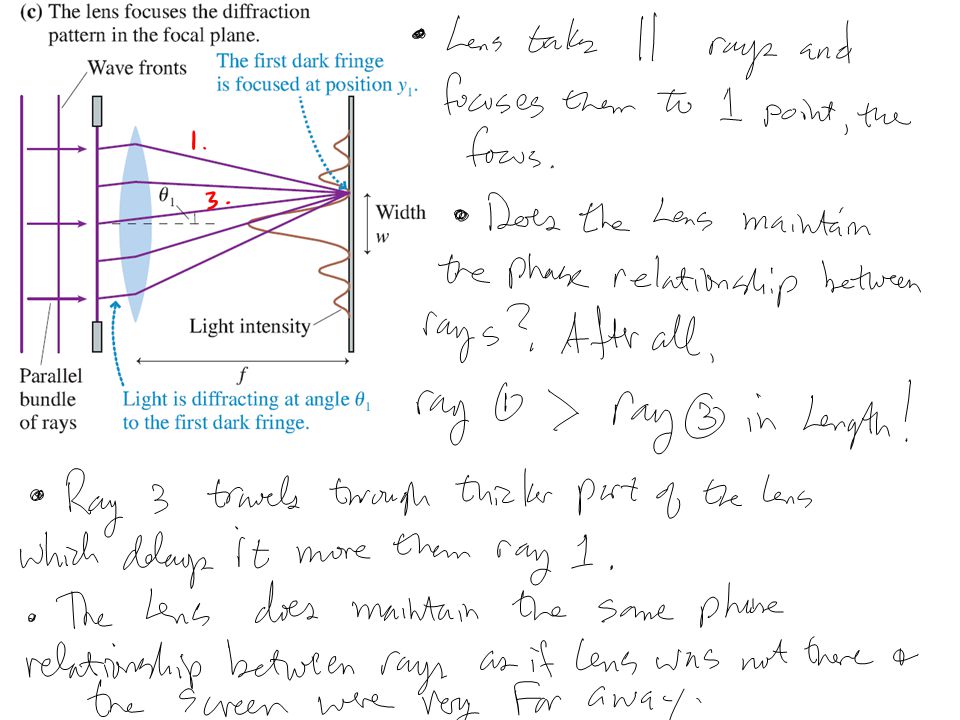 (c) The lens focuses the diffraction
pattern in the focal plane.
Wave fronts
The first dark fringe
is focused at position y₁.
1.
θ₁
3.
Width
w
Light intensity
f
Parallel
bundle
of rays
Light is diffracting at angle θ₁
to the first dark fringe.
• Lens takes || rays and
focuses them to 1 point, the
focus.
• Does the Lens maintain
the phase relationship between
rays? After all,
ray ① > ray ③ in Length!
• Ray 3 travels through thicker part of the lens
which delays it more them ray 1.
• The Lens does maintain the same phase
relationship between rays as if lens was not there &
the screen were very far away.